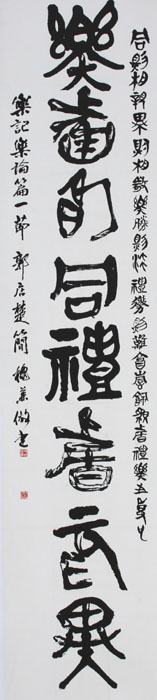 樂者為同禮者為異
同則相親異則相敬樂勝則流禮勝則離合情飾貌者禮樂之事也
樂記樂論篇一節 郭店楚簡 倣書